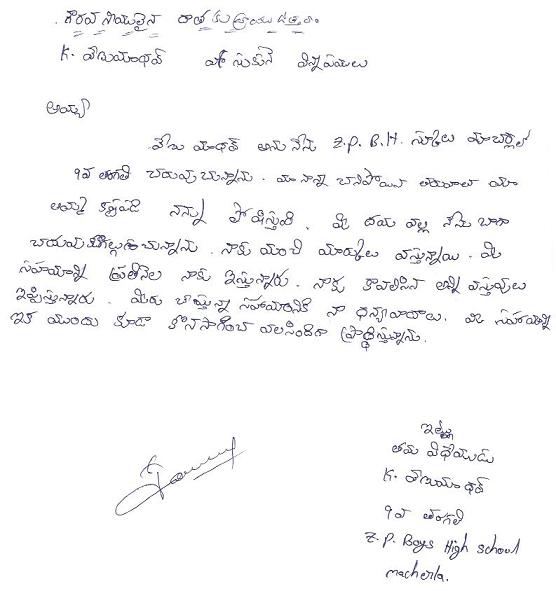 గౌరవనీయులైన దాతకు వ్రాయు ఉత్తరం
K. వేణుమాధవ్ వ్రాసుకునే విన్నపములు
అయ్యా
వేణు మాధవ్ అను నేను Z.P.B.H. స్కూలు మాచర్లలో
9వ తరగతి చదువుచున్నాను. మా నాన్న చనిపోయిన తరువాత మా
అమ్మ కష్టపడి నన్ను పోషిస్తుంది. మీ దయ వల్ల నేను బాగా
చదువుకోగల్గుచున్నాను. నాకు మంచి మార్కులు వస్తున్నాయి. మీ
సహాయాన్ని ప్రతినెల నాకు ఇస్తున్నారు. నాకు కావలసిన అన్ని వస్తువులు
ఇప్పిస్తున్నారు. మీరు చేస్తున్న సహాయానికి నా ధన్యవాదాలు. మీ సహాయాన్ని
ఇక ముందు కూడా కొనసాగించ వలసిందిగా ప్రార్థిస్తున్నాను.
ఇట్లు
తమ విధేయుడు
K. వేణుమాధవ్
9వ తరగతి
Z.P. Boys High school
macherla.